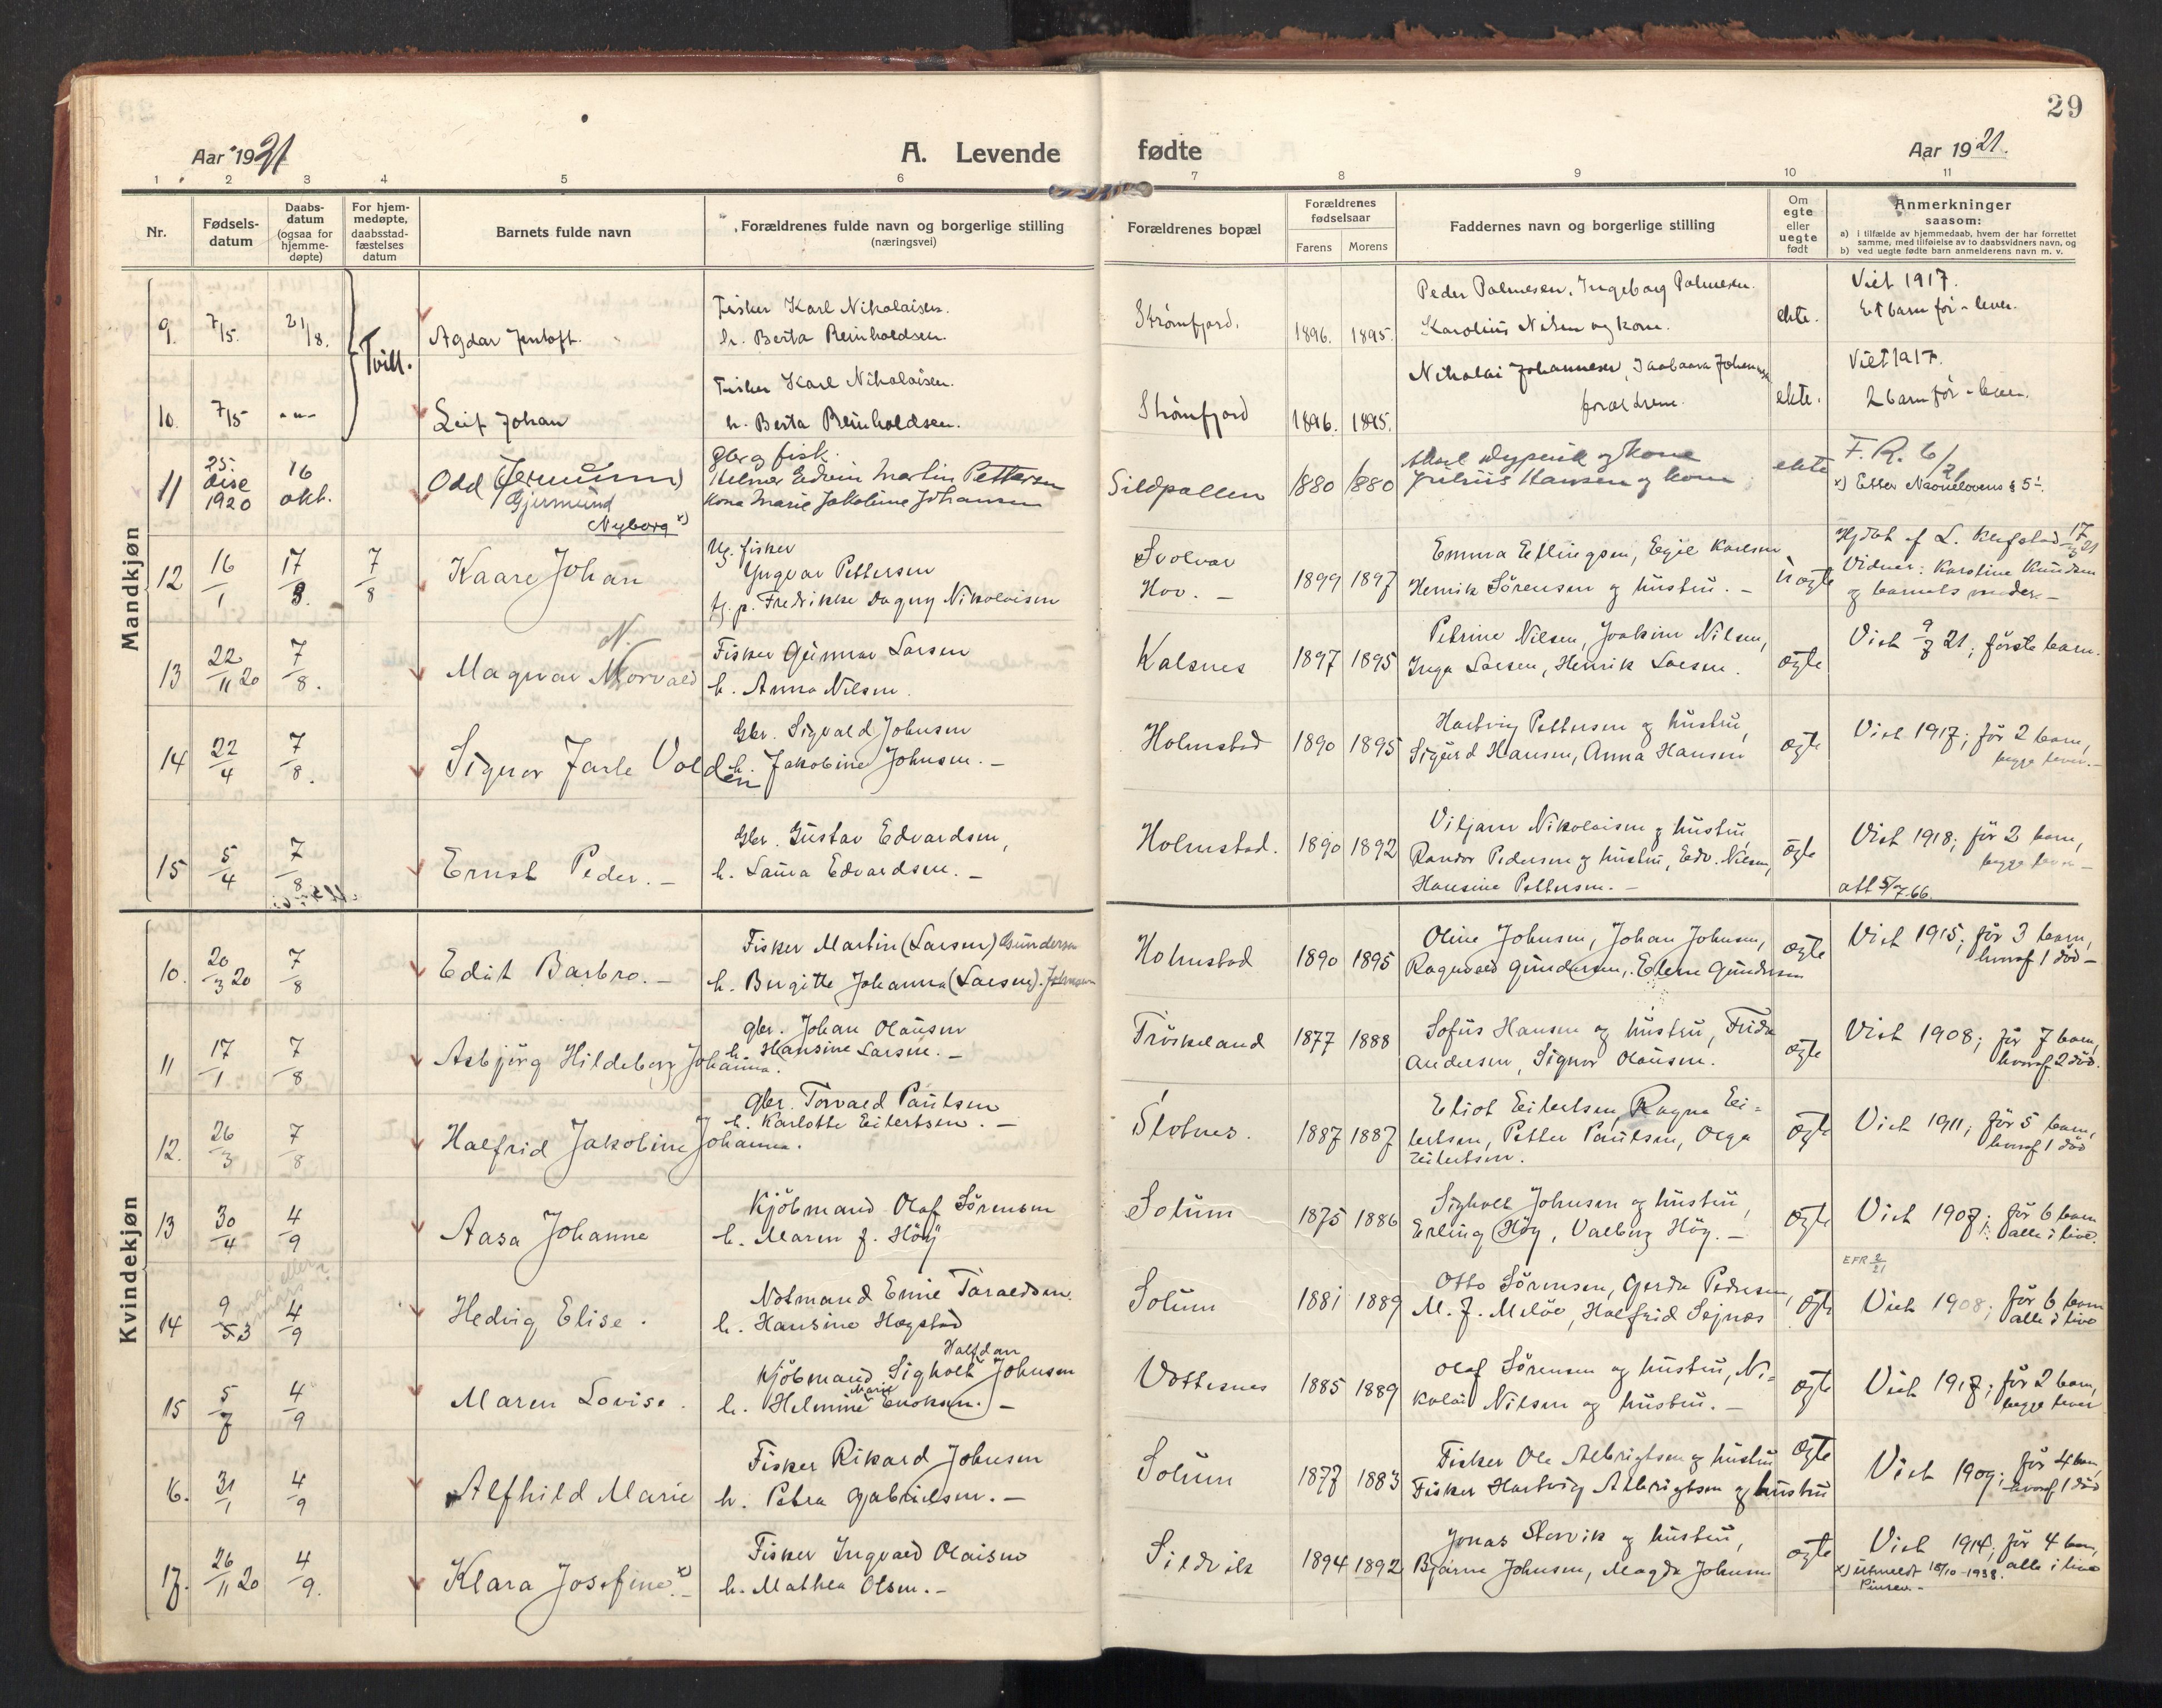 29
Aar 1921
A. Levende fødte
Aar 1921.
1 2 3 4 5 6 7 8 9 10 11
Nr.
Fødsels-
datum
Daabs-
datum
(ogsaa for
hjemme-
døpte)
For hjem-
medøpte,
daabsstad-
fæstelses
datum
Barnets fulde navn
Forældrenes fulde navn og borgerlige stilling
(næringsvei)
Forældrenes bopæl
Forældrenes
fødselsaar
Farens Morens
Faddernes navn og borgerlige stilling
Om
egte
eller
uegte
født
Anmerkninger
saasom:
a) i tilfælde av hjemmedaab, hvem der har forrettet
samme, med tilføielse av to daabsvidners navn, og
b) ved uegte fødte barn anmelderens navn m. v.
Mandkjøn
9. 7/5. 21/8. Tvill. Agdar Jentoft.
Fisker Karl Nikolaisen.
h. Berta Reinholdsen.
Strømfjord. 1896. 1895.
Peder Palmesen, Ingeborg Palmesen.
Karolius Nilsen og kone.
ekte.
Viet 1917.
Et barn før - lever.
10. 7/5 -"- Leif Johan
Fisker Karl Nikolaisen.
h. Berta Reinholdsen.
Strømfjord 1896. 1895.
Nikolai Johannesen,
forældrene.
ekte.
Viet 1917.
2 barn før - lever.
11 25. 1920 16 okt. Odd (Jermunn)
Gjermund
Nyborg x)
Gbr og fisk.
Hilmar Edvin Martin Pettersen
Kona Marie Jakobine Johansen
Sildpollen 1880 1880
og kone
Julius Hansen og kone
ekte
F. R. 6/21
x) Etter Navnelovens § 5
12 16/1 17/3. 7/8 Kaare Johan
Ug. fisker
Yngvar Pettersen
Fredrikke Dagny Nikolaisen
Svolvær
Hov. - 1899 1897
Emma Ellingsen, Egil Karlsen,
Henrik Sørensen og hustru. -
uegte
Hjdøbt af L. Klefstad 17/1 21
Vidner: Karoline Knudsen
og barnets moder. -
13 22/11 20 7/8. Magnar Norvald
N.
Fisker Gunnar Larsen
h. Anna Nilsen.
Kalsnes 1897 1895
Petrine Nilsen, Joakim Nilsen,
Inga Larsen, Henrik Larsen.
ægte
Viet 9/7 21; første barn.
14 22/4 7/8. Signor Jarle Volden
Gbr. Sigvald Johnsen
h. Jakobine Johnsen. -
Holmstad 1890 1895
Hartvig Pettersen og hustru,
Sigurd Hansen, Anna Hansen
ægte
Viet 1917; før 2 barn,
begge lever. -
15 5/4 7/8 Ernst Peder. -
Gbr. Gustav Edvardsen,
h. Laura Edvardsen. -
Holmstad. 1890 1892
Viljam Nikolaisen og hustru,
Randor Pedersen og hustru, Edv. Nilsen,
Hansine Pettersen. -
ægte
Viet 1918; før 2 barn,
begge lever -
att 5/7.66.
Kvindekjøn
10. 20/3 20 7/8 Edit Barbro. -
Fisker Martin (Larsen) Gundersen
h. Birgitte Johanna (Larsen). Johnsen
Holmstad 1890 1895
Oline Johnsen, Johan Johnsen,
Ragnvald Gundersen, Elene Gundersen
ægte
Viet 1915; før 3 barn,
hvoraf 1 død -
11 17/1 7/8 Asbjörg Hildeborg Johanna.
gbr. Johan Olausen
h. Hansine Larsen. -
Fröskeland 1877 1888
Sofus Hansen og hustru, Frida
Andersen, Signor Olausen.
ægte
Viet 1908; før 7 barn,
hvoraf 2 død.
12. 26/3 7/8 Halfrid Jakobine Johanna.
gbr. Torvald Paulsen
h. Karlotte Eilertsen. -
Slotnes. 1887 1887
Eliot Eilertsen, Ragna Ei-
lertsen, Petter Paulsen, Olga
Eilertsen.
ægte
Viet 1911; før 5 barn,
hvoraf 1 død
13 30/4 4/9 Aasa Johanne
Kjöbmand Olaf Sörensen
h. Maren f. Höy
Solum 1875 1886
Sigholt Johnsen og hustru,
Erling Höy, Valborg Höy. -
ægte
Viet 1907; før 6 barn
alle i live.
14 9/3 4/9 Hedvig Elise.
Notmand Enie Taraldsen.
h. Hansine Hogstad
Solum 1881 1889
Otto Sörensen, Gerda Pedersen,
M. J. Melöe, Halfrid Sejnæs
ægte
EFR 2/21
Viet 1908; før 6 barn
alle i live
15 5/7 4/9 Maren Lovise.
Halfdan
Kjöbmand Sigholt Johnsen
Marie
h. Helmine Enoksen. -
Vottesnes 1885 1889
Olaf Sörensen og hustru, Ni-
kolai Nilsen og hustru. -
ægte
Viet 1917; før 2 barn,
begge lever
16. 31/1 4/9 Alfhild Marie
Fisker Rikard Johnsen
h. Petra Gabrielsen. -
Solum 1877 1883
Fisker Ole Albrigtsen og hustru
Fisker Hartvig Albrigtsen og hustru
ægte
Viet 1909; før 4 barn,
hvoraf 1 død
17. 26/11 20 4/9. Klara Josefine. x) -
Fisker Ingvald Olaisen
h. Mathea Olsen. -
Sildvik 1894 1892
Jonas Storvik og hustru,
Bjarne Johnsen, Magda Johnsen
ægte
Viet 1914; før 4 barn,
alle i live
x) utmeldt 18/10-1938.
Pinsev. -